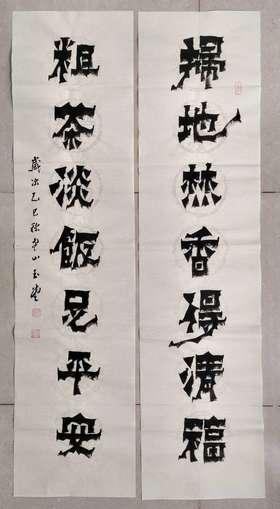 掃地焚香得清福
粗茶淡飯足平安
歲次乙巳秋